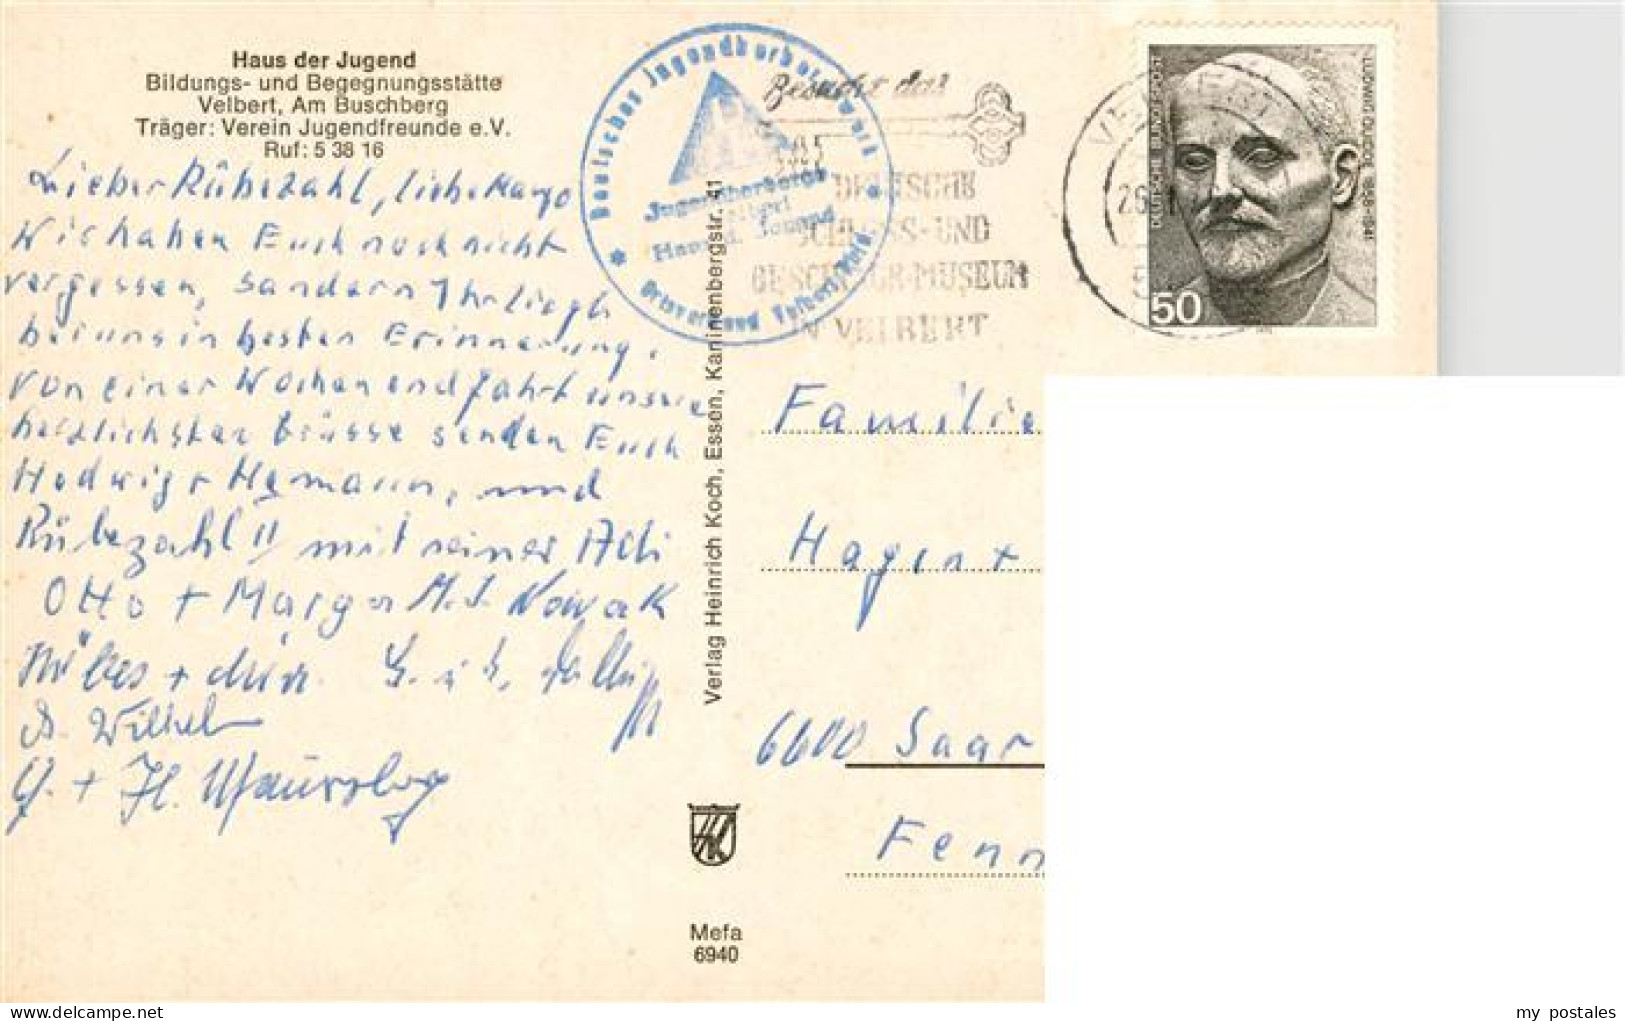 Haus der Jugend
Bildungs- und Begegnungsstätte
Velbert, Am Buschberg
Träger: Verein Jugendfreunde e.V.
Ruf: 5 38 16
Lieber Rübezahl, liebe Margo
Wir haben Euch noch nicht
vergessen, sondern Ihr liegt
bei uns in bester Erinnerung.
Von einer Wochenendfahrt unsere
herzlichsten Grüsse senden Euch
Hedwig + Hermann, und
Rübezahl II mit seiner Adi
Otto + Margo M. J. Nowak
A. Wilhel
Deutsches Jugendherbergswerk
Jugendherberge
Velbert
Haus d. Jugend
Ortsverband Velbert/Rhld.
Besucht das
DEUTSCHE
SCHLOSS- UND
BESCHLÄGE-MUSEUM
IN VELBERT
DEUTSCHE BUNDESPOST
LUDWIG QUIDDE 1858-1941
50
Verlag Heinrich Koch, Essen, Kaninenbergstr. 41
Familie
Hagen +
6600 Saar
Fenn
HK
Mefa
6940
delcampe.net
my_postales